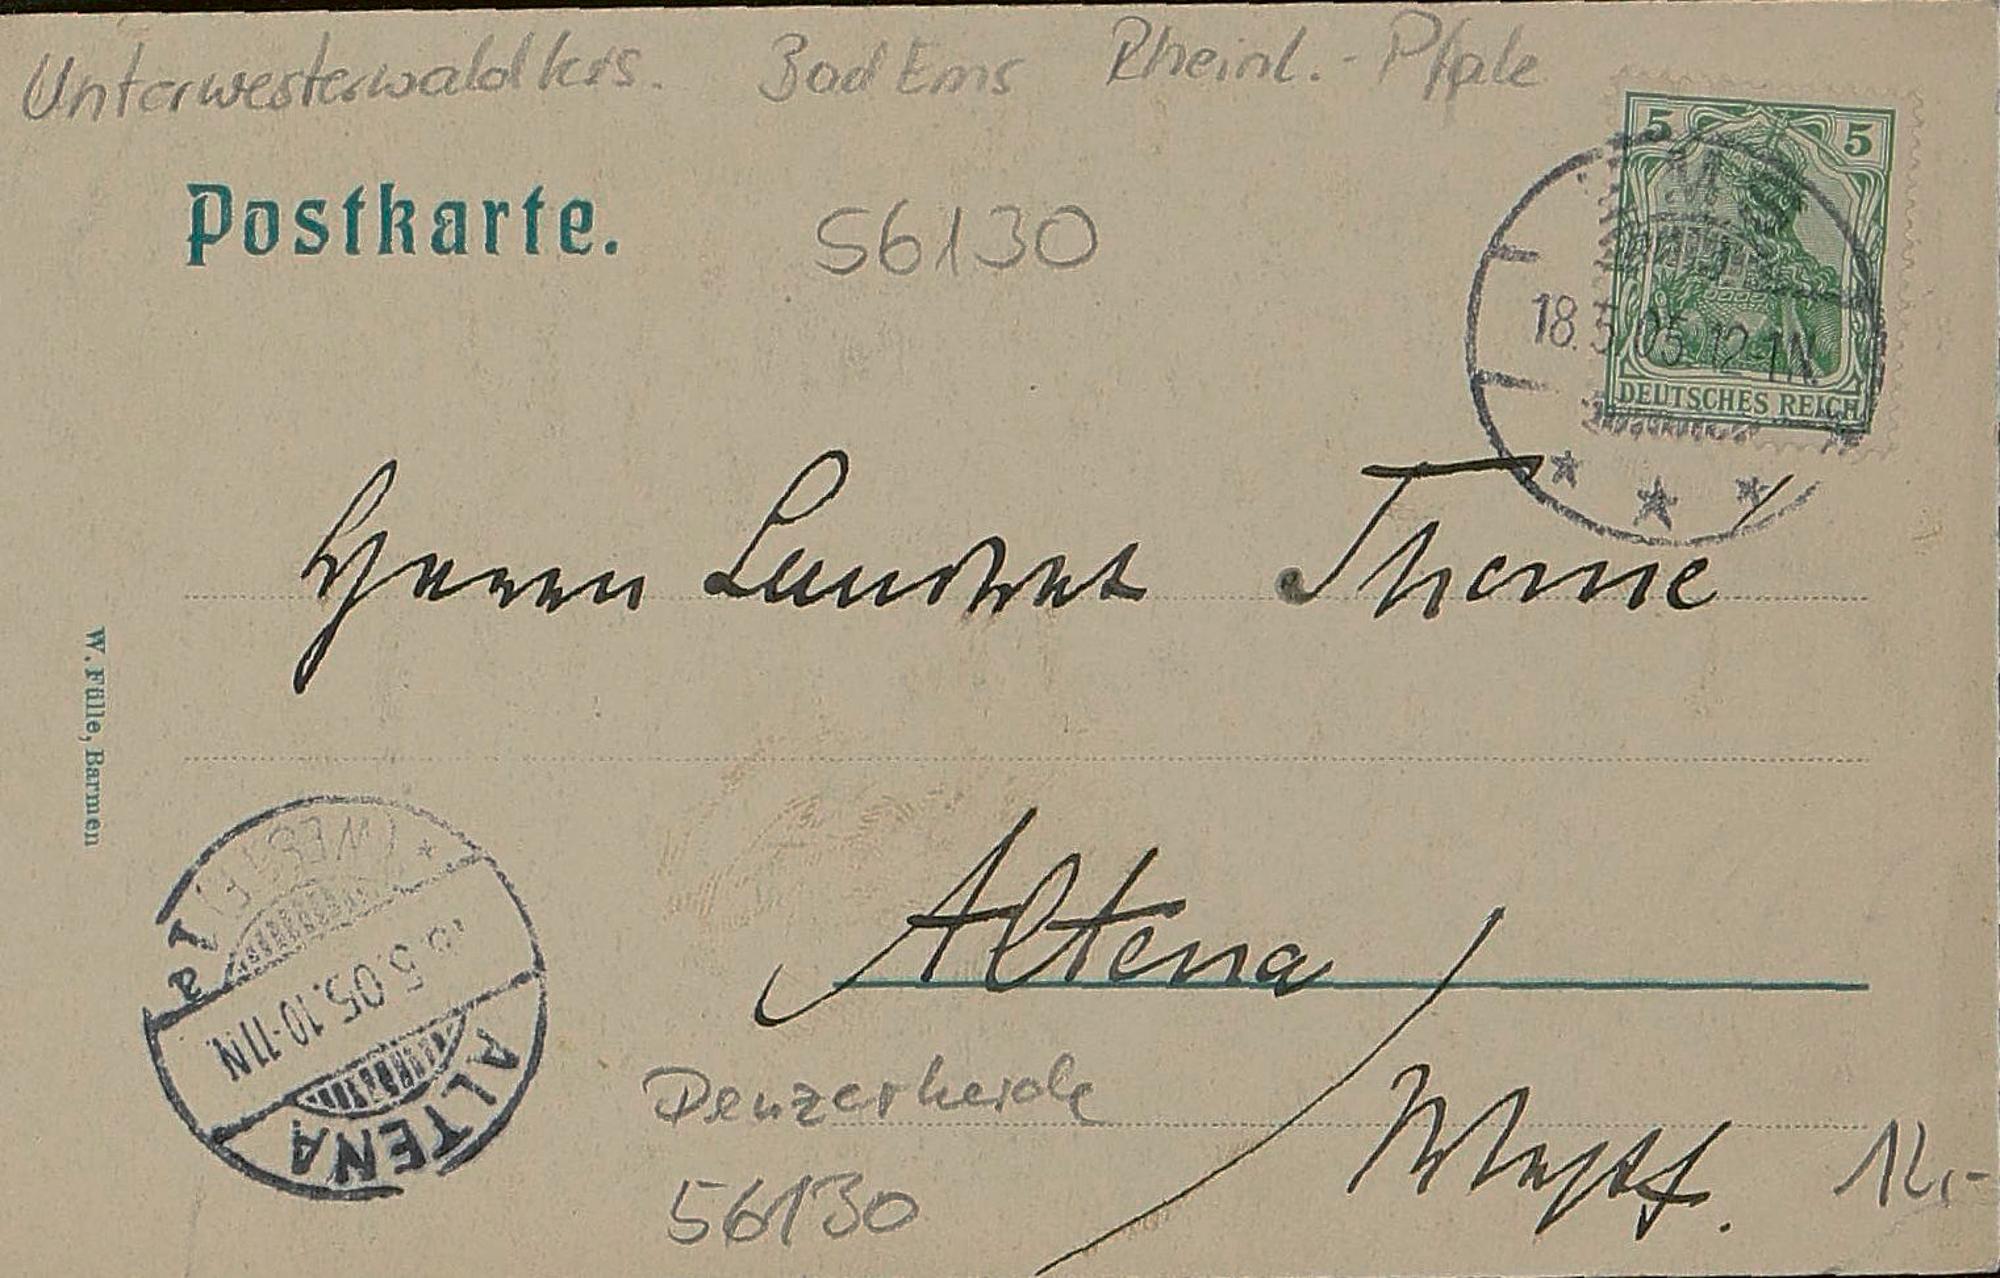 Unterwesterwaldkrs. Bad Ems Rheinl.-Pfalz
Postkarte.
56130
5 5
DEUTSCHES REICH
EMS
18.5.05.12-1N.
Herrn Landrat Thomé
W. Fülle, Barmen
Altena
Westf.
(WESTF.)
5.05.10-11N.
ALTENA
Denzerheide
56130
12,-